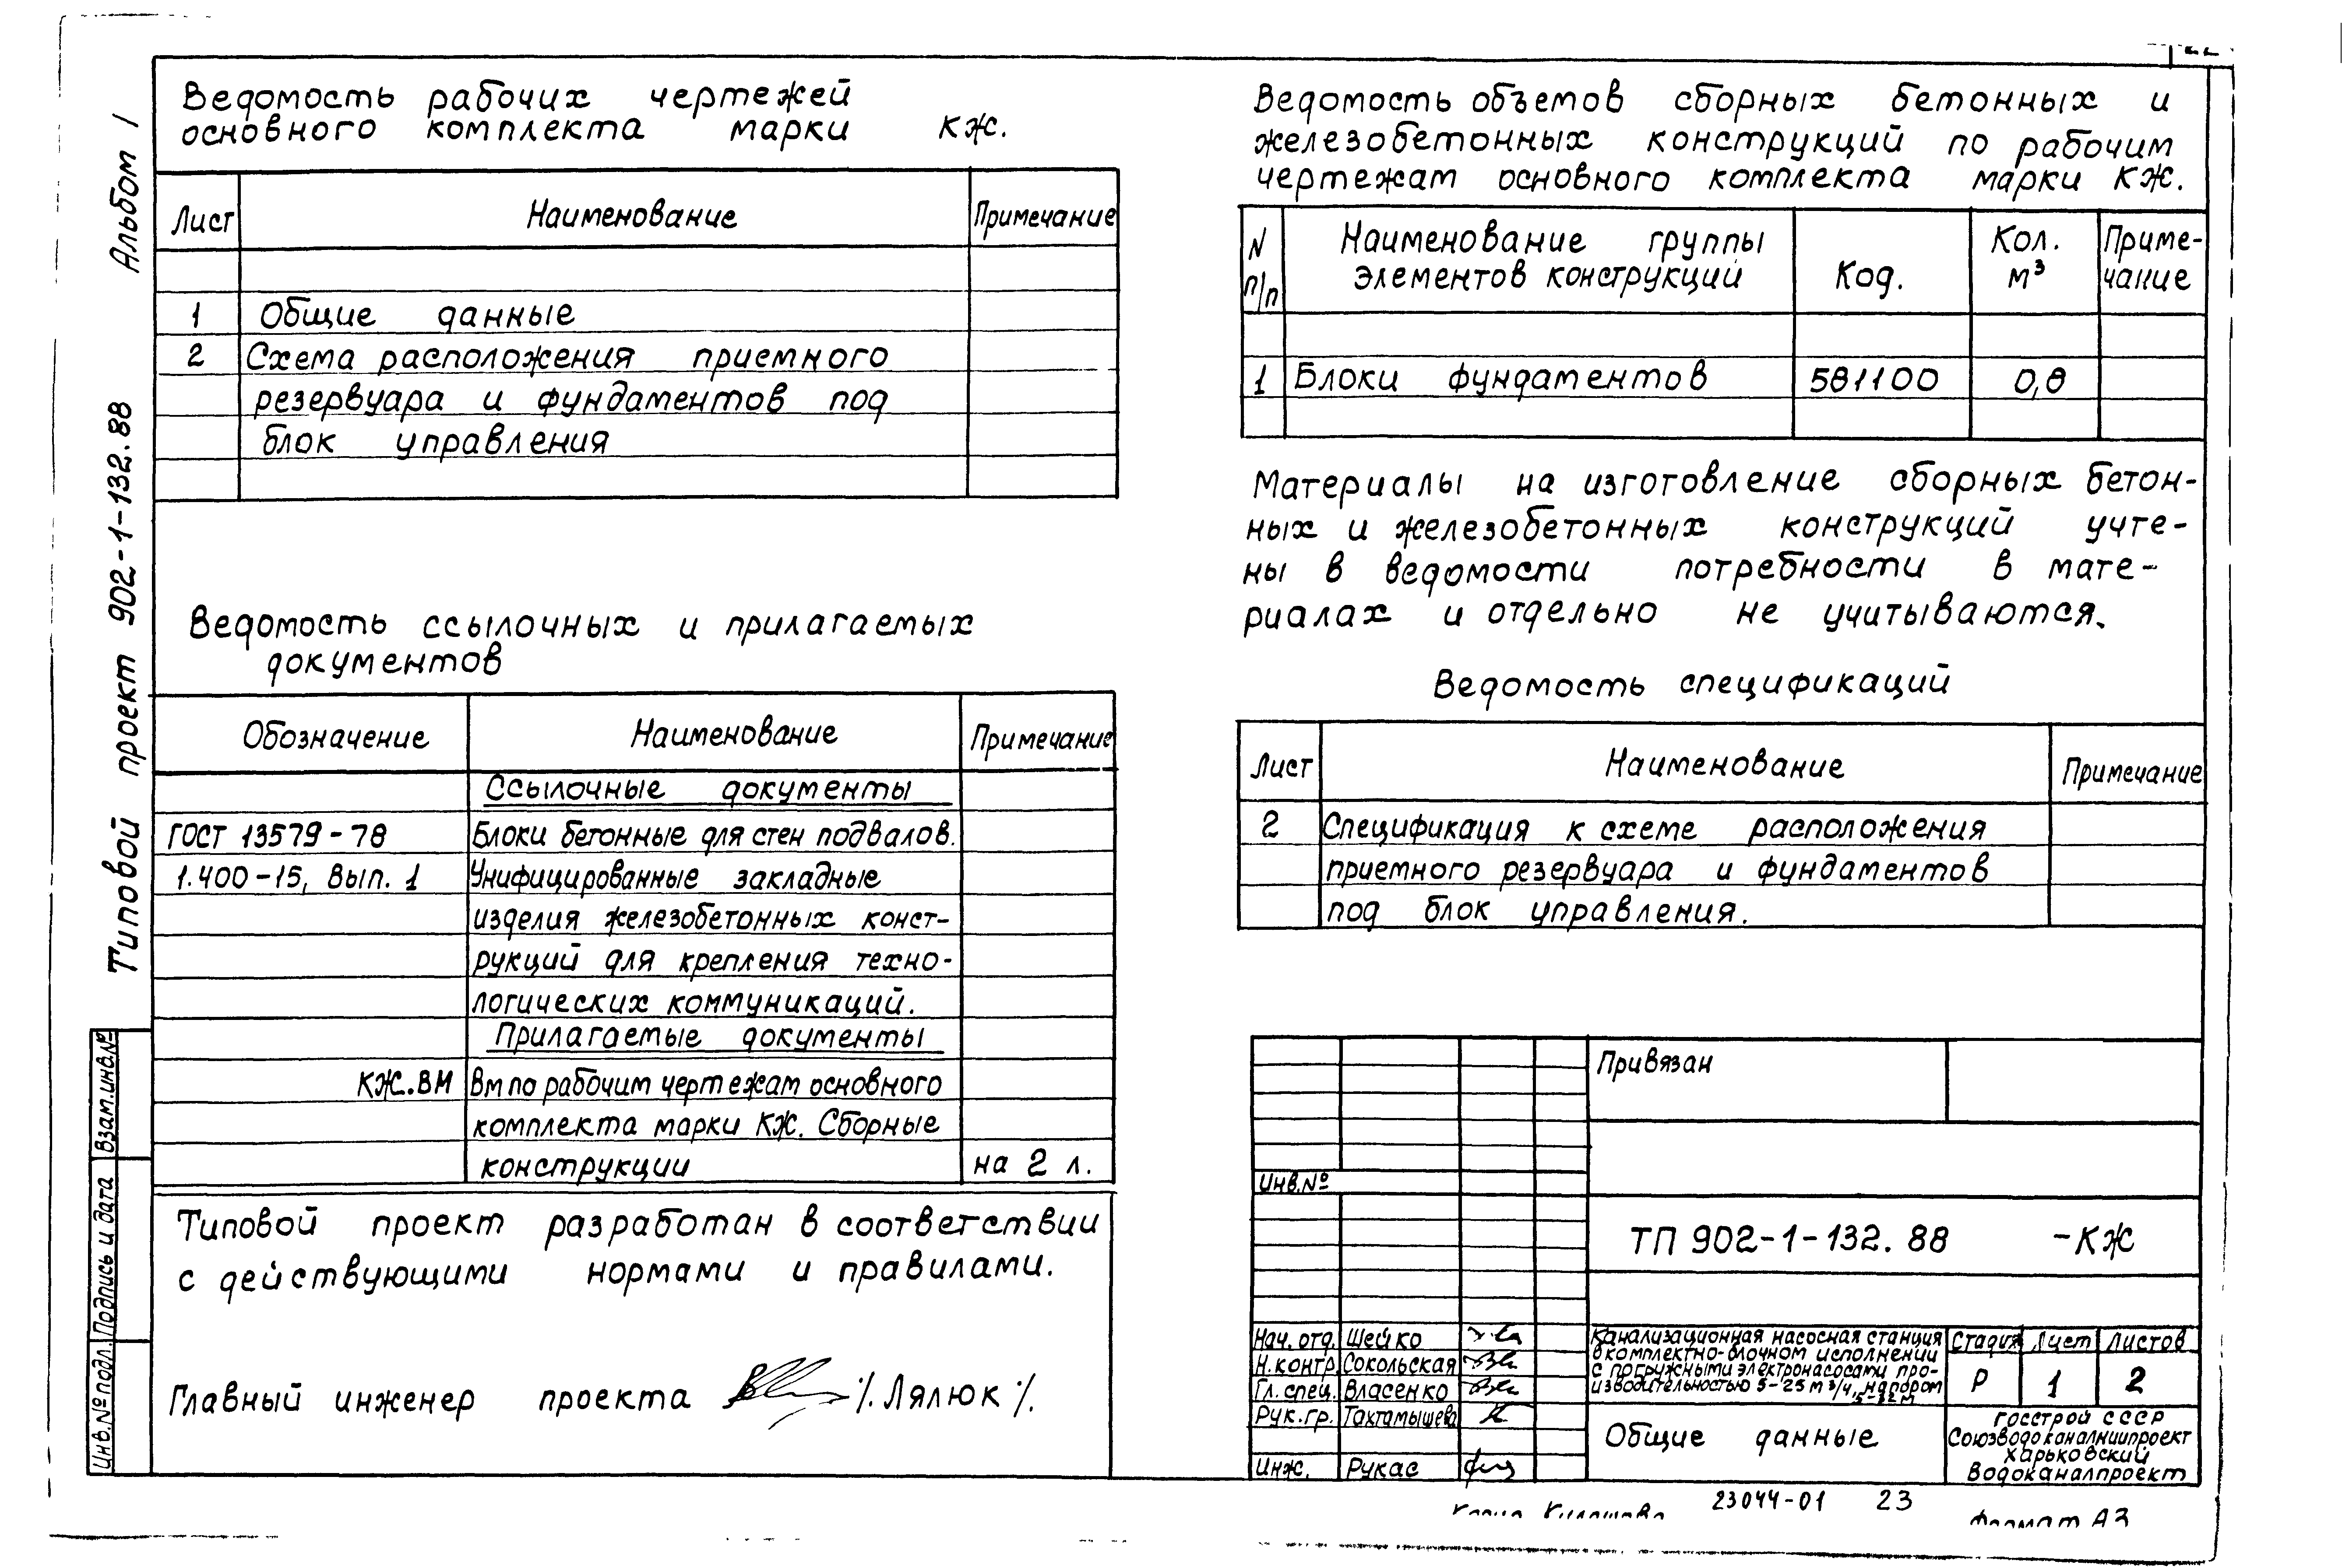 Альбом 1
Типовой проект 902-1-132.88
Взам.инв.№
Подпись и дата
Инв.№ подл.
Ведомость рабочих чертежей
основного комплекта марки КЖ.
Лист Наименование Примечание
1 Общие данные
2 Схема расположения приемного
резервуара и фундаментов под
блок управления
Ведомость ссылочных и прилагаемых
документов
Обозначение Наименование Примечание
Ссылочные документы
ГОСТ 13579-78 Блоки бетонные для стен подвалов.
1.400-15, Вып. 1 Унифицированные закладные
изделия железобетонных конст-
рукций для крепления техно-
логических коммуникаций.
Прилагаемые документы
КЖ.ВМ Вм по рабочим чертежам основного
комплекта марки КЖ. Сборные
конструкции на 2 л.
Типовой проект разработан в соответствии
с действующими нормами и правилами.
Главный инженер проекта /. Лялюк /.
Ведомость объемов сборных бетонных и
железобетонных конструкций по рабочим
чертежам основного комплекта марки КЖ.
N п/п Наименование группы элементов конструкций Код. Кол. м³ Приме-
чание
1 Блоки фундаментов 581100 0,8
Материалы на изготовление сборных бетон-
ных и железобетонных конструкций учте-
ны в ведомости потребности в мате-
риалах и отдельно не учитываются.
Ведомость спецификаций
Лист Наименование Примечание
2 Спецификация к схеме расположения
приемного резервуара и фундаментов
под блок управления.
Привязан
Инв.№
ТП 902-1-132.88 -КЖ
Нач. отд. Шейко
Н.контр. Сокольская
Гл. спец. Власенко
Рук.гр. Тахтамышева
Инж. Рукас
Канализационная насосная станция
в комплектно-блочном исполнении
с погружными электронасосами про-
изводительностью 5-25 м³/ч, напором
5-32 м
Стадия Лист Листов
Р 1 2
Общие данные
Госстрой СССР
Союзводоканалниипроект
Харьковский
Водоканалпроект
23044-01 23
Формат А3